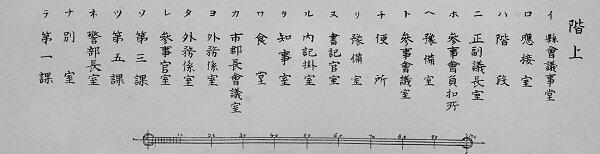 階上
イ 縣會議事堂
ロ 應接室
ハ 階段
ニ 正副議長室
ホ 參事會員扣所
ヘ 豫備室
ト 參事會議室
チ 便所
リ 豫備室
ヌ 書記官室
ル 内記掛室
ヲ 知事室
ワ 食堂
カ 市郡長會議室
ヨ 外務係室
タ 外務係室
レ 參事官室
ソ 第三課
ツ 第五課
ネ 警部長室
ナ 別室
ラ 第一課
10 20 30 40 50 60 70 80 90